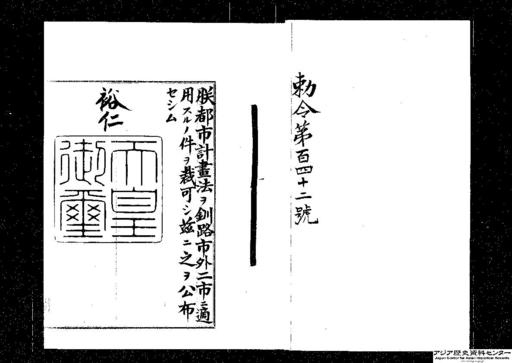 勅令第百四十二號
朕都市計畫法ヲ釧路市外二市ニ適
用スルノ件ヲ裁可シ茲ニ之ヲ公布
セシム
裕仁
天皇
御璽
アジア歴史資料センター
Japan Center for Asian Historical Records